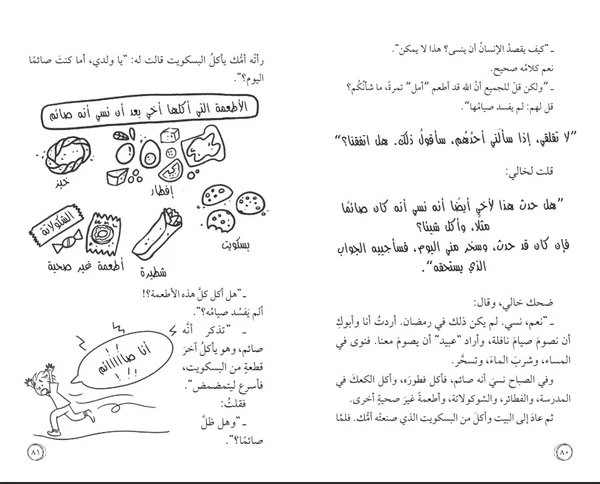 ـ "كيف يقصدُ الإنسانُ أن ينسى؟ هذا لا يمكن".
نعم كلامُه صحيح.
ـ "ولكن قلْ للجميع أنَّ الله قد أطعم "أمل" تمرةً، ما شأنُكُم؟
قل لهم: لم يفسد صيامُها".
"لا تقلقي، إذا سألني أحدُهُم، سأقولُ ذلك. هل اتفقنا؟"
قلت لخالي:
"هل حدث هذا لأخي أيضًا أنه نسي أنه كان صائمًا
مثلًا، وأكل شيئًا؟
فإن كان قد حدث، وسخر مني اليوم، فسأجيبه الجواب
الذي يستحقه".
ضحك خالي، وقال:
ـ "نعم، نسي. لم يكن ذلك في رمضان. أردتُ أنا وأبوكِ
أن نصومَ صيامَ نافلة، وأراد "عبيد" أن يصومَ معنا. فنوى في
المساء، وشربَ الماءَ، وتسحَّر.
وفي الصباح نسيَ أنه صائم، فأكل فطورَه، وأكل الكعكَ في
المدرسة، والفطائر، والشوكولاتة، وأطعمةً غيرَ صحيةٍ أخرى.
ثم عادَ إلى البيت وأكلَ من البسكويت الذي صنعتْه أمُّك. فلمَّا
٨٠
رأتْه أمُّك يأكلُ البسكويت قالت له: "يا ولدي، أما كنتَ صائمًا
اليوم؟".
الأطعمة التي أكلها أخي بعد أن نسي أنه صائم
خبز
إفطار
بسكويت
الشكولاتة
أطعمة غير صحية
شطيرة
ـ "هل أكل كلَّ هذه الأطعمة؟!
ألم يَفسُد صيامُه؟".
ـ "تذكر أنَّه
صائم، وهو يأكلُ آخرَ
قطعةٍ من البسكويت،
فأسرع ليتمضمض".
فقلتُ:
ـ "وهل ظلَّ
صائمًا؟".
أنا صاااائم
!!!
٨١